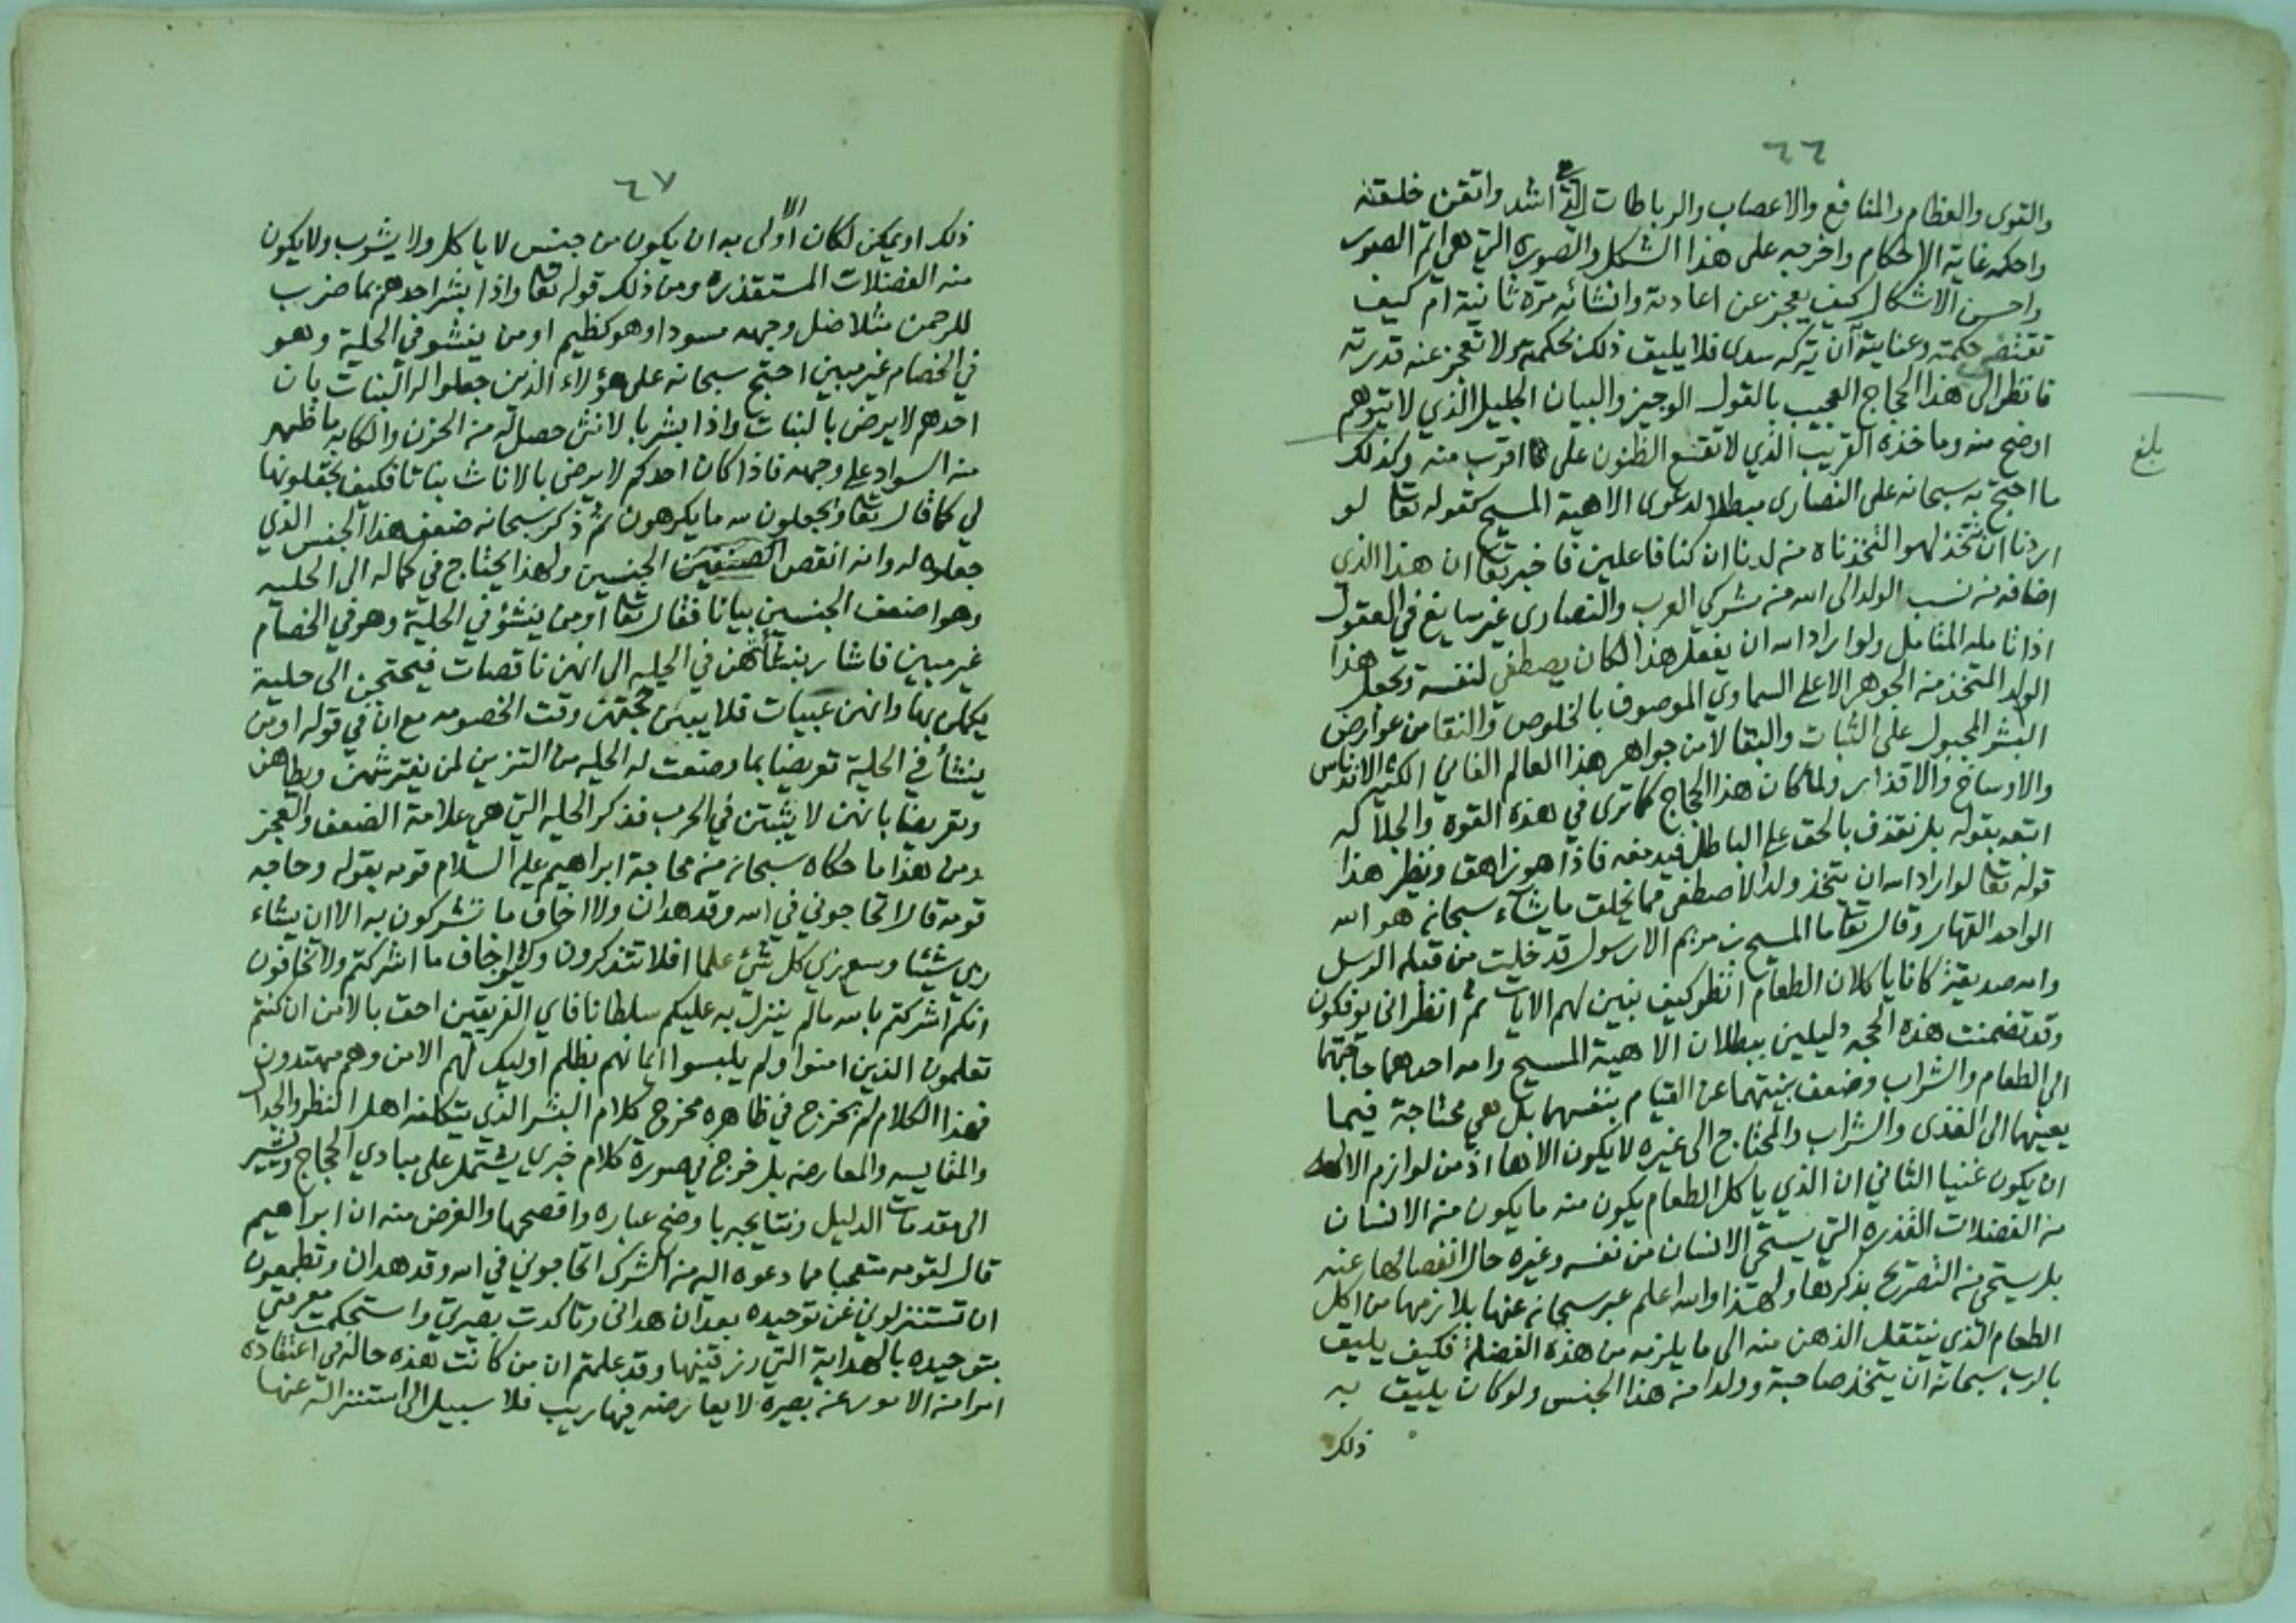 ٦٦
والقوى والعظام والمنافع والاعصاب والرباطات التي اشد واتقن خلقته
واحكمه غاية الاحكام واخرجه على هذا الشكل والصورة التي هي اتم الصور
واحسن الاشكال كيف يعجز عن اعادته وانشائه مرة ثانية ام كيف
تقتضي حكمته وعنايته ان يتركه سدى فلا يليق ذلك بحكمته ولا تعجز عنه قدرته
فانظر الى هذا الحجاج العجيب بالقول الوجيز والبيان الجليل الذي لا يتوهم
اوضح منه وماخذه القريب الذي لا تقع الظنون على اقرب منه وكذلك
ما احتج به سبحانه على النصارى مبطلا لدعوى الاهية المسيح كقوله تعا لو
اردنا ان نتخذ لهوا لاتخذناه من لدنا ان كنا فاعلين فاخبر تعا ان هذا الذي
اضافه من نسب الولد الى الله من مشركي العرب والنصارى غير سايغ في العقول
اذا تامله المتامل ولو اراد الله ان يفعل هذا لكان يصطفي لنفسه ويجعل هذا
الولد المتخذ من الجوهر الاعلى السماوي الموصوف بالخلوص والنقا من عوارض
البشر المجبول على الثبات والبقا لا من جواهر هذا العالم الفاني الكثير الادناس
والاوساخ والاقذار ولما كان هذا الحجاج كما ترى في هذه القوة والجلالة
اتبعه بقوله بل نقذف بالحق على الباطل فيدمغه فاذا هو زاهق ونظير هذا
قوله تعا لو اراد الله ان يتخذ ولدا لاصطفى مما يخلق ما يشآء سبحانه هو الله
الواحد القهار وقال تعا ما المسيح بن مريم الا رسول قد خلت من قبله الرسل
وامه صديقة كانا ياكلان الطعام انظر كيف نبين لهم الايات ثم انظر انى يوفكون
وقد تضمنت هذه الحجه دليلين ببطلان الاهية المسيح وامه احدهما حاجتهما
الى الطعام والشراب وضعف بنيتهما عن القيام بنفسهما بل هي محتاجة فيما
يعينهما الى الغذى والشراب والمحتاج الى غيره لا يكون الاها اذ من لوازم الاله
ان يكون غنيا الثاني ان الذي ياكل الطعام يكون منه ما يكون من الانسان
من الفضلات القذره التي يستحي الانسان من نفسه وغيره حال انفصالها عنه
بل يستحي من التصريح بذكرها ولهذا والله اعلم عبر سبحانه عنها بلازمها من اكل
الطعام الذي ينتقل الذهن منه الى ما يلزمه من هذه الفضلة فكيف يليق
بالرب سبحانه ان يتخذ صاحبة وولدا من هذا الجنس ولو كان يليق به
ذلك
بلغ
٦٧
ذلك او يمكن لكان الاولى به ان يكون من جنس لا ياكل ولا يشرب ولا يكون
منه الفضلات المستقذره ومن ذلك قوله تعا واذا بشر احدهم بما ضرب
للرحمن مثلا ضل وجهه مسودا وهو كظيم اومن ينشو في الحلية وهو
في الخصام غير مبين احتج سبحانه على هؤلاء الذين جعلوا له البنات بان
احدهم لا يرضى بالبنات واذا بشر بالانثى حصل له من الحزن والكابه ما ظهر
منه السواد على وجهه فاذا كان احدكم لا يرضى بالاناث بناتا فكيف تجعلونها
لي كما قال تعا ويجعلون لله ما يكرهون ثم ذكر سبحانه ضعف هذا الجنس الذي
جعلوه له وانه انقص الجنسين ولهذا يحتاج في كماله الى الحليه
وهو اضعف الجنسين بيانا فقال تعا اومن ينشؤ في الحلية وهو في الخصام
غير مبين فاشار بنشأتهن في الحليه الى انهن ناقصات فيحتجن الى حلية
يكملن بها وانهن عييات فلا يبين حجتهن وقت الخصومه مع ان في قوله اومن
ينشأ في الحلية تعريضا بما وضعت له الحليه من التزين لمن يفترشهن ويطاهن
وتعريضا بانهن لا يثبتن في الحرب فذكر الحليه التي هي علامة الضعف والعجز
ومن هذا ما حكاه سبحانه من محاجة ابراهيم عليه السلام قومه بقوله وحاجه
قومه قال اتحاجوني في الله وقد هدان ولا اخاف ما تشركون به الا ان يشاء
ربي شيئا وسع ربي كل شئ علما افلا تتذكرون وكيف اخاف ما اشركتم ولا تخافون
انكم اشركتم بالله مالم ينزل به عليكم سلطانا فاي الفريقين احق بالامن ان كنتم
تعلمون الذين امنوا ولم يلبسوا ايمانهم بظلم اوليك لهم الامن وهم مهتدون
فهذا الكلام لم يخرج في ظاهره مخرج كلام البشر الذي يتكلفه اهل النظر والجدال
والمقايسه والمعارضه بل خرج في صورة كلام خبري يشتمل على مبادي الحجاج ويشير
الى مقدمات الدليل ونتايجه باوضح عباره وافصحها والغرض منه ان ابراهيم
قال لقومه متعجبا مما دعوه اليه من الشرك اتحاجوني في الله وقد هدان وتطمعون
ان تستنزلوني عن توحيده بعد ان هداني وتاكدت بصيرتي واستحكمت معرفتي
بتوحيده بالهداية التي رزقنيها وقد علمتم ان من كانت هذه حاله في اعتقاده
امرا من الامور عن بصيرة لا يعارضه فيها ريب فلا سبيل الى استنزاله عنها